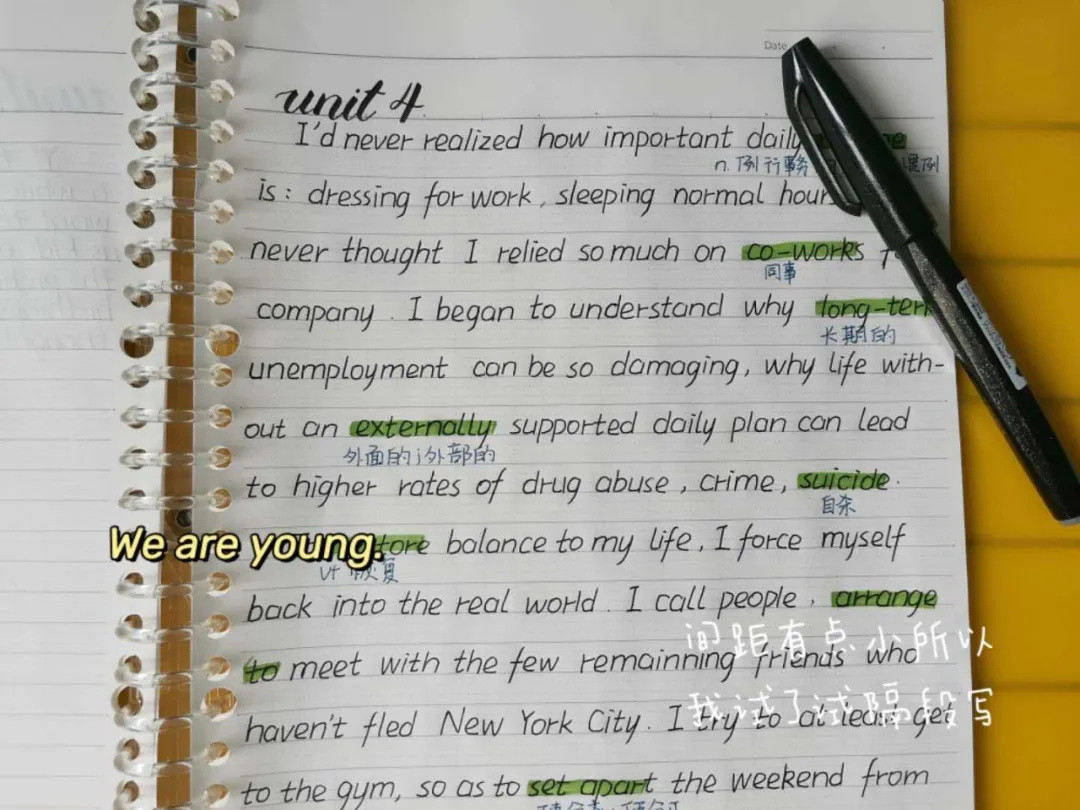 Date
unit 4
I'd never realized how important daily
n. 例行事务 惯例
is: dressing for work, sleeping normal hour
never thought I relied so much on co-works
同事
company. I began to understand why long-ter
长期的
unemployment can be so damaging, why life with-
out an externally supported daily plan can lead
外面的;外部的
to higher rates of drug abuse, crime, suicide.
自杀
We are young.
tore balance to my life, I force myself
vt 恢复
back into the real world. I call people, arrange
间距有点小所以
to meet with the few remainning friends who
我试了试隔段写
haven't fled New York City. I try to at least get
to the gym, so as to set apart the weekend from